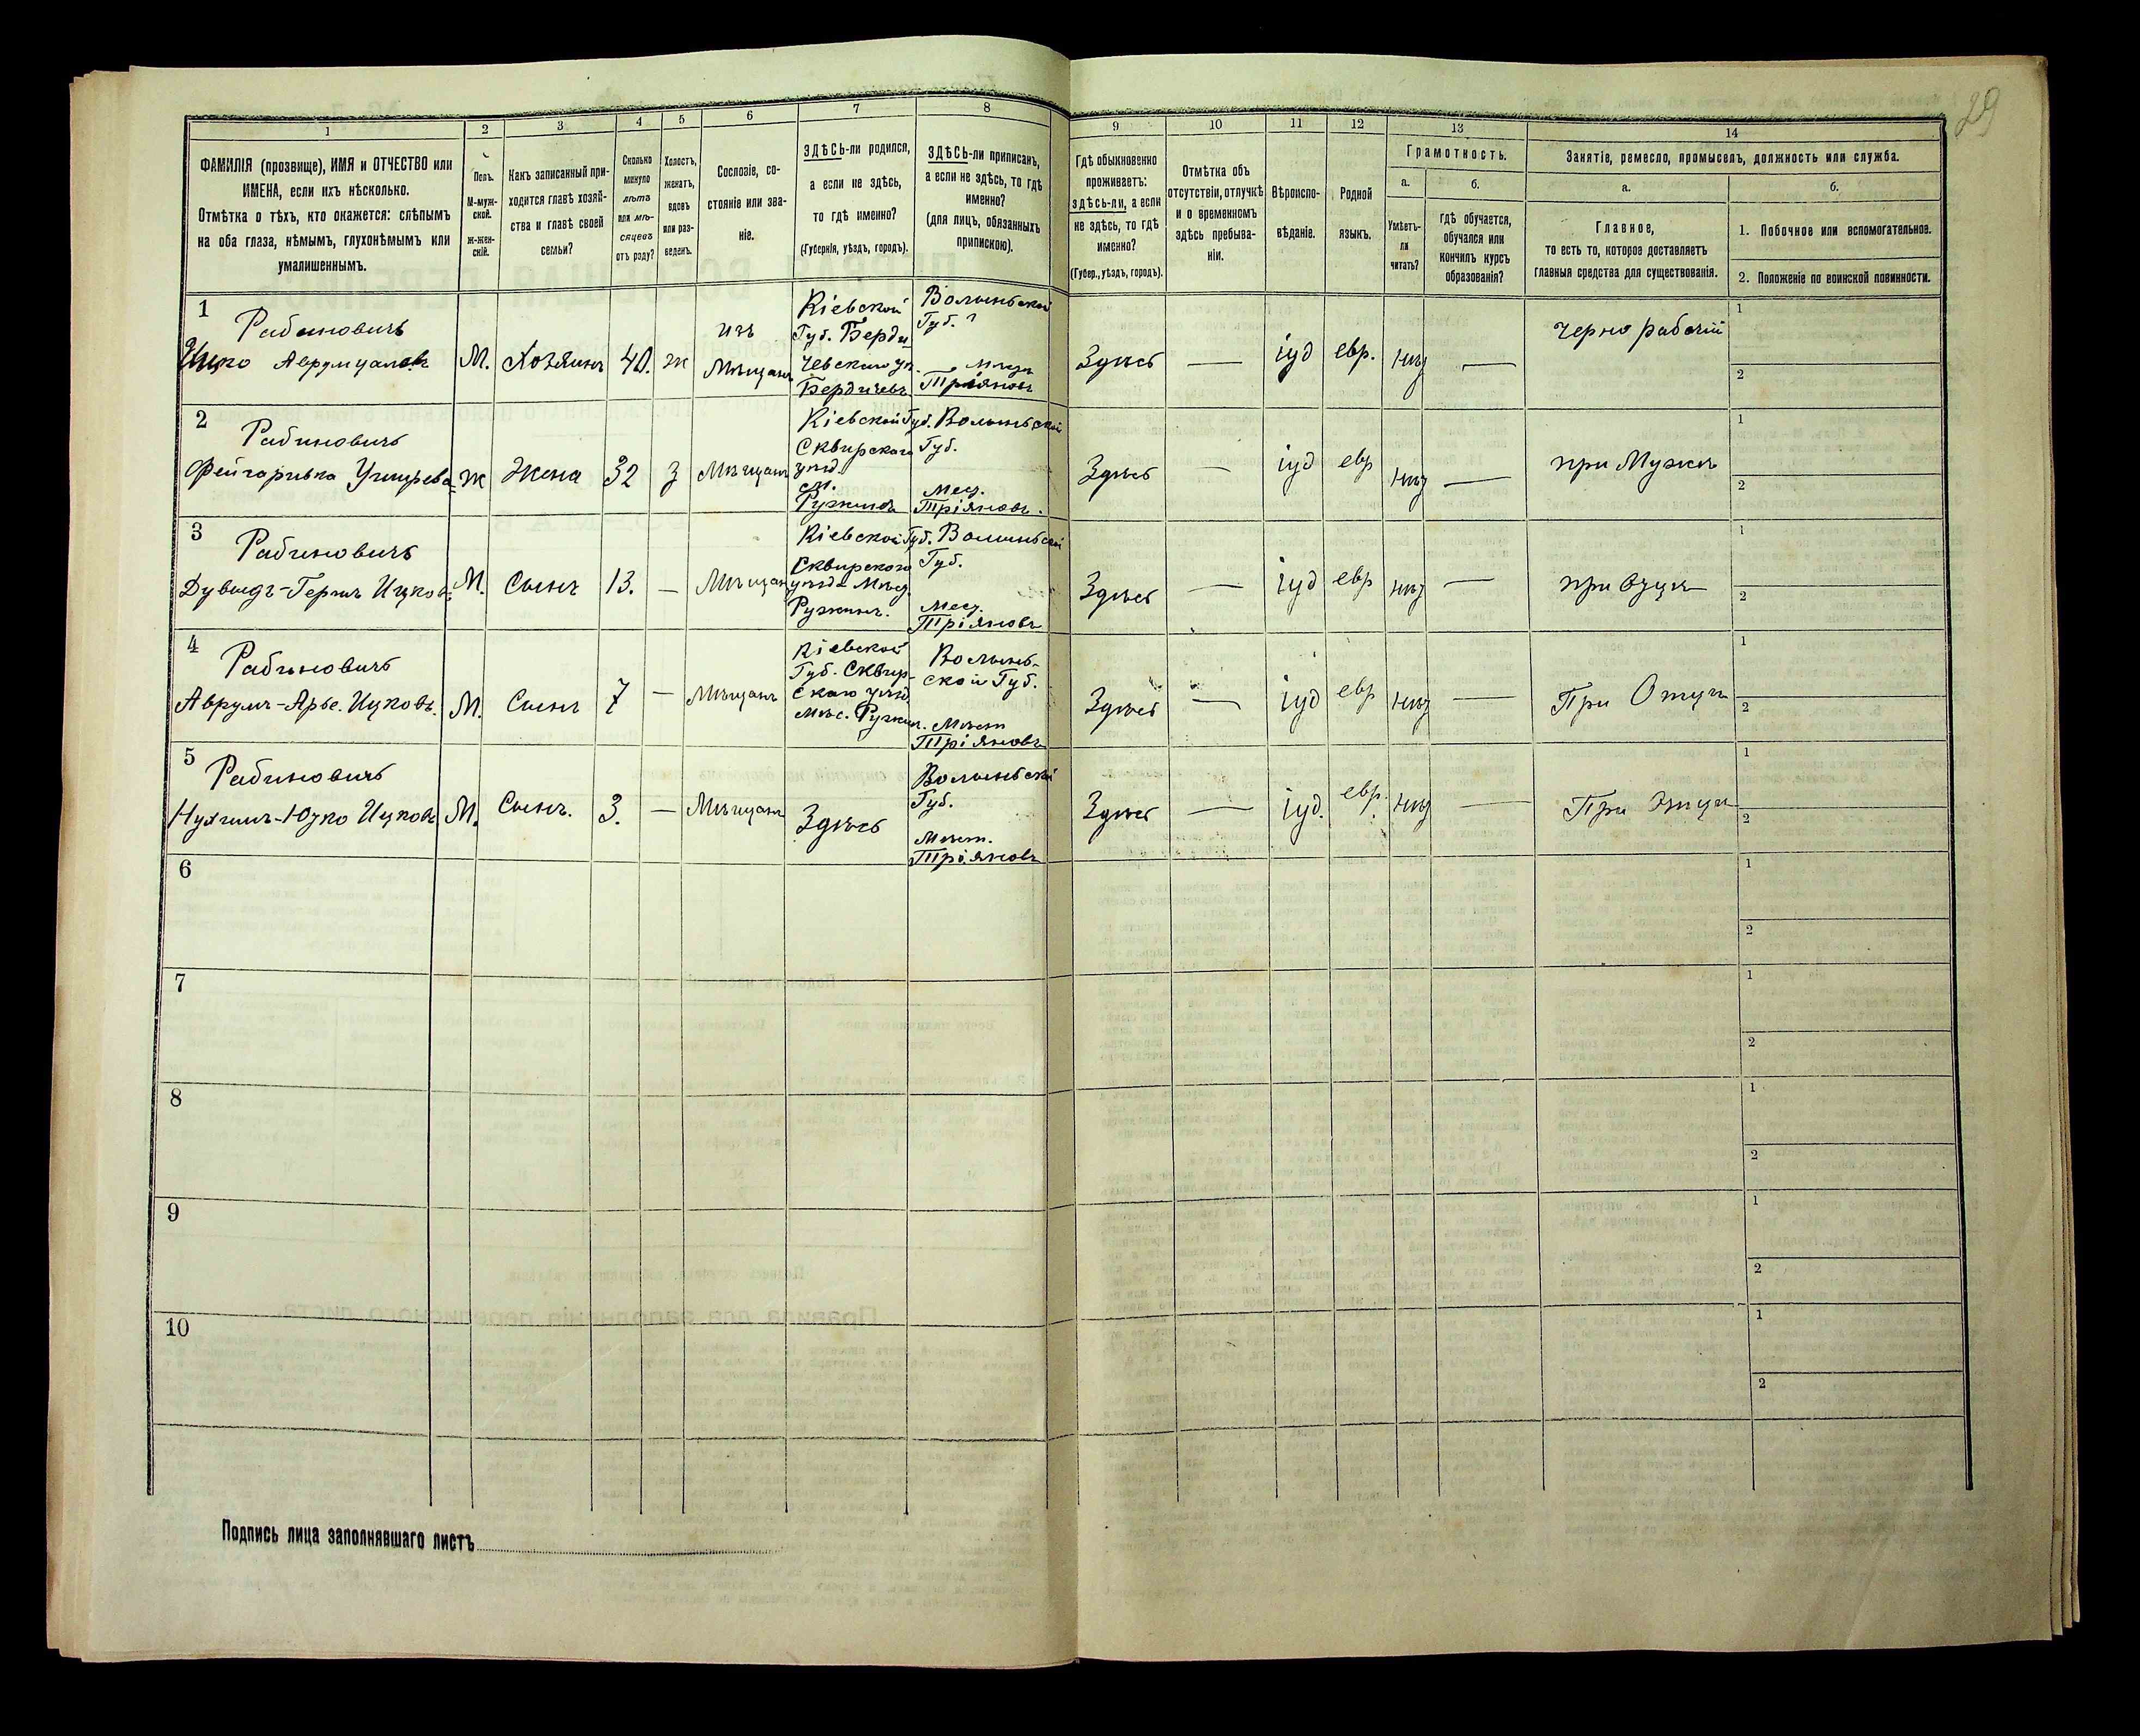 29
1
2
3
4
5
6
7
8
9
10
11
12
13
14
ФАМИЛІЯ (прозвище), ИМЯ и ОТЧЕСТВО или
ИМЕНА, если ихъ нѣсколько.
Отмѣтка о тѣхъ, кто окажется: слѣпымъ
на оба глаза, нѣмымъ, глухонѣмымъ или
умалишеннымъ.
Полъ.
М-муж-
ской.
ж-жен-
скій.
Какъ записанный при-
ходится главѣ хозяй-
ства и главѣ своей
семьи?
Сколько
минуло
лѣтъ
или мѣ-
сяцевъ
отъ роду?
Холостъ,
женатъ,
вдовъ
или раз-
веденъ.
Сословіе, со-
стояніе или зва-
ніе.
ЗДѢСЬ-ли родился,
а если не здѣсь,
то гдѣ именно?
(Губернія, уѣздъ, городъ).
ЗДѢСЬ-ли приписанъ,
а если не здѣсь, то гдѣ
именно?
(для лицъ, обязанныхъ
припискою).
Гдѣ обыкновенно
проживаетъ:
здѣсь-ли, а если
не здѣсь, то гдѣ
именно?
(Губер., уѣздъ, городъ).
Отмѣтка объ
отсутствіи, отлучкѣ
и о временномъ
здѣсь пребыва-
ніи.
Вѣроиспо-
вѣданіе.
Родной
языкъ.
Грамотность.
а.
Умѣетъ-
ли
читать?
б.
гдѣ обучается,
обучался или
кончилъ курсъ
образованія?
Занятіе, ремесло, промыселъ, должность или служба.
а.
Главное,
то есть то, которое доставляетъ
главныя средства для существованія.
б.
1. Побочное или вспомогательное.
2. Положеніе по воинской повинности.
1
Рабиновичъ
Ицко
М.
Хозяинъ
40.
ж
изъ
Мѣщанъ
Кіевской
Губ. Берди
чевскаго уѣ.
Бердичевъ
Волыньской
Губ.
Тріяновъ
Здѣсь
—
іуд
евр.
нѣт
—
черно рабочій
1
2
2
Рабиновичъ
Ж
Жена
32
з
Мѣщанъ
Кіевской Губ.
Сквирскаго
уѣзд.
м.
Ружинъ
Волыньской
Губ.
Мес.
Тріяновъ.
Здѣсь
—
іуд
евр
нѣт
—
при Мужѣ
1
2
3
Рабиновичъ
Дувидъ-Гершъ Ицковъ
М.
Сынъ
13.
—
Мѣщан
Кіевской Губ.
Сквирского
уѣзд. Мѣс.
Ружинъ.
Волыньской
Губ.
Мес.
Тріяновъ
Здѣсь
—
іуд
евр
нѣт
—
при Оцуѣ
1
2
4
Рабиновичъ
Аврумъ-Арье. Ицковъ.
М.
Сынъ
7
—
Мѣщанъ
Кіевской
Губ. Сквир-
скаго уѣзд.
Мѣс. Ружин.
Волынь-
ской Губ.
Мѣст
Тріяновъ
Здѣсь
—
іуд
евр
нѣт
—
При Отцѣ
1
2
5
Рабиновичъ
Нухимъ-Юзко Ицковъ
М.
Сынъ.
3.
—
Мѣщанъ
Здѣсь
Волыньской
Губ.
Мѣст.
Тріяновъ
Здѣсь
—
іуд.
евр.
нѣт
—
При Отцѣ
1
2
6
1
2
7
1
2
8
1
2
9
1
2
10
1
2
Подпись лица заполнявшаго листъ